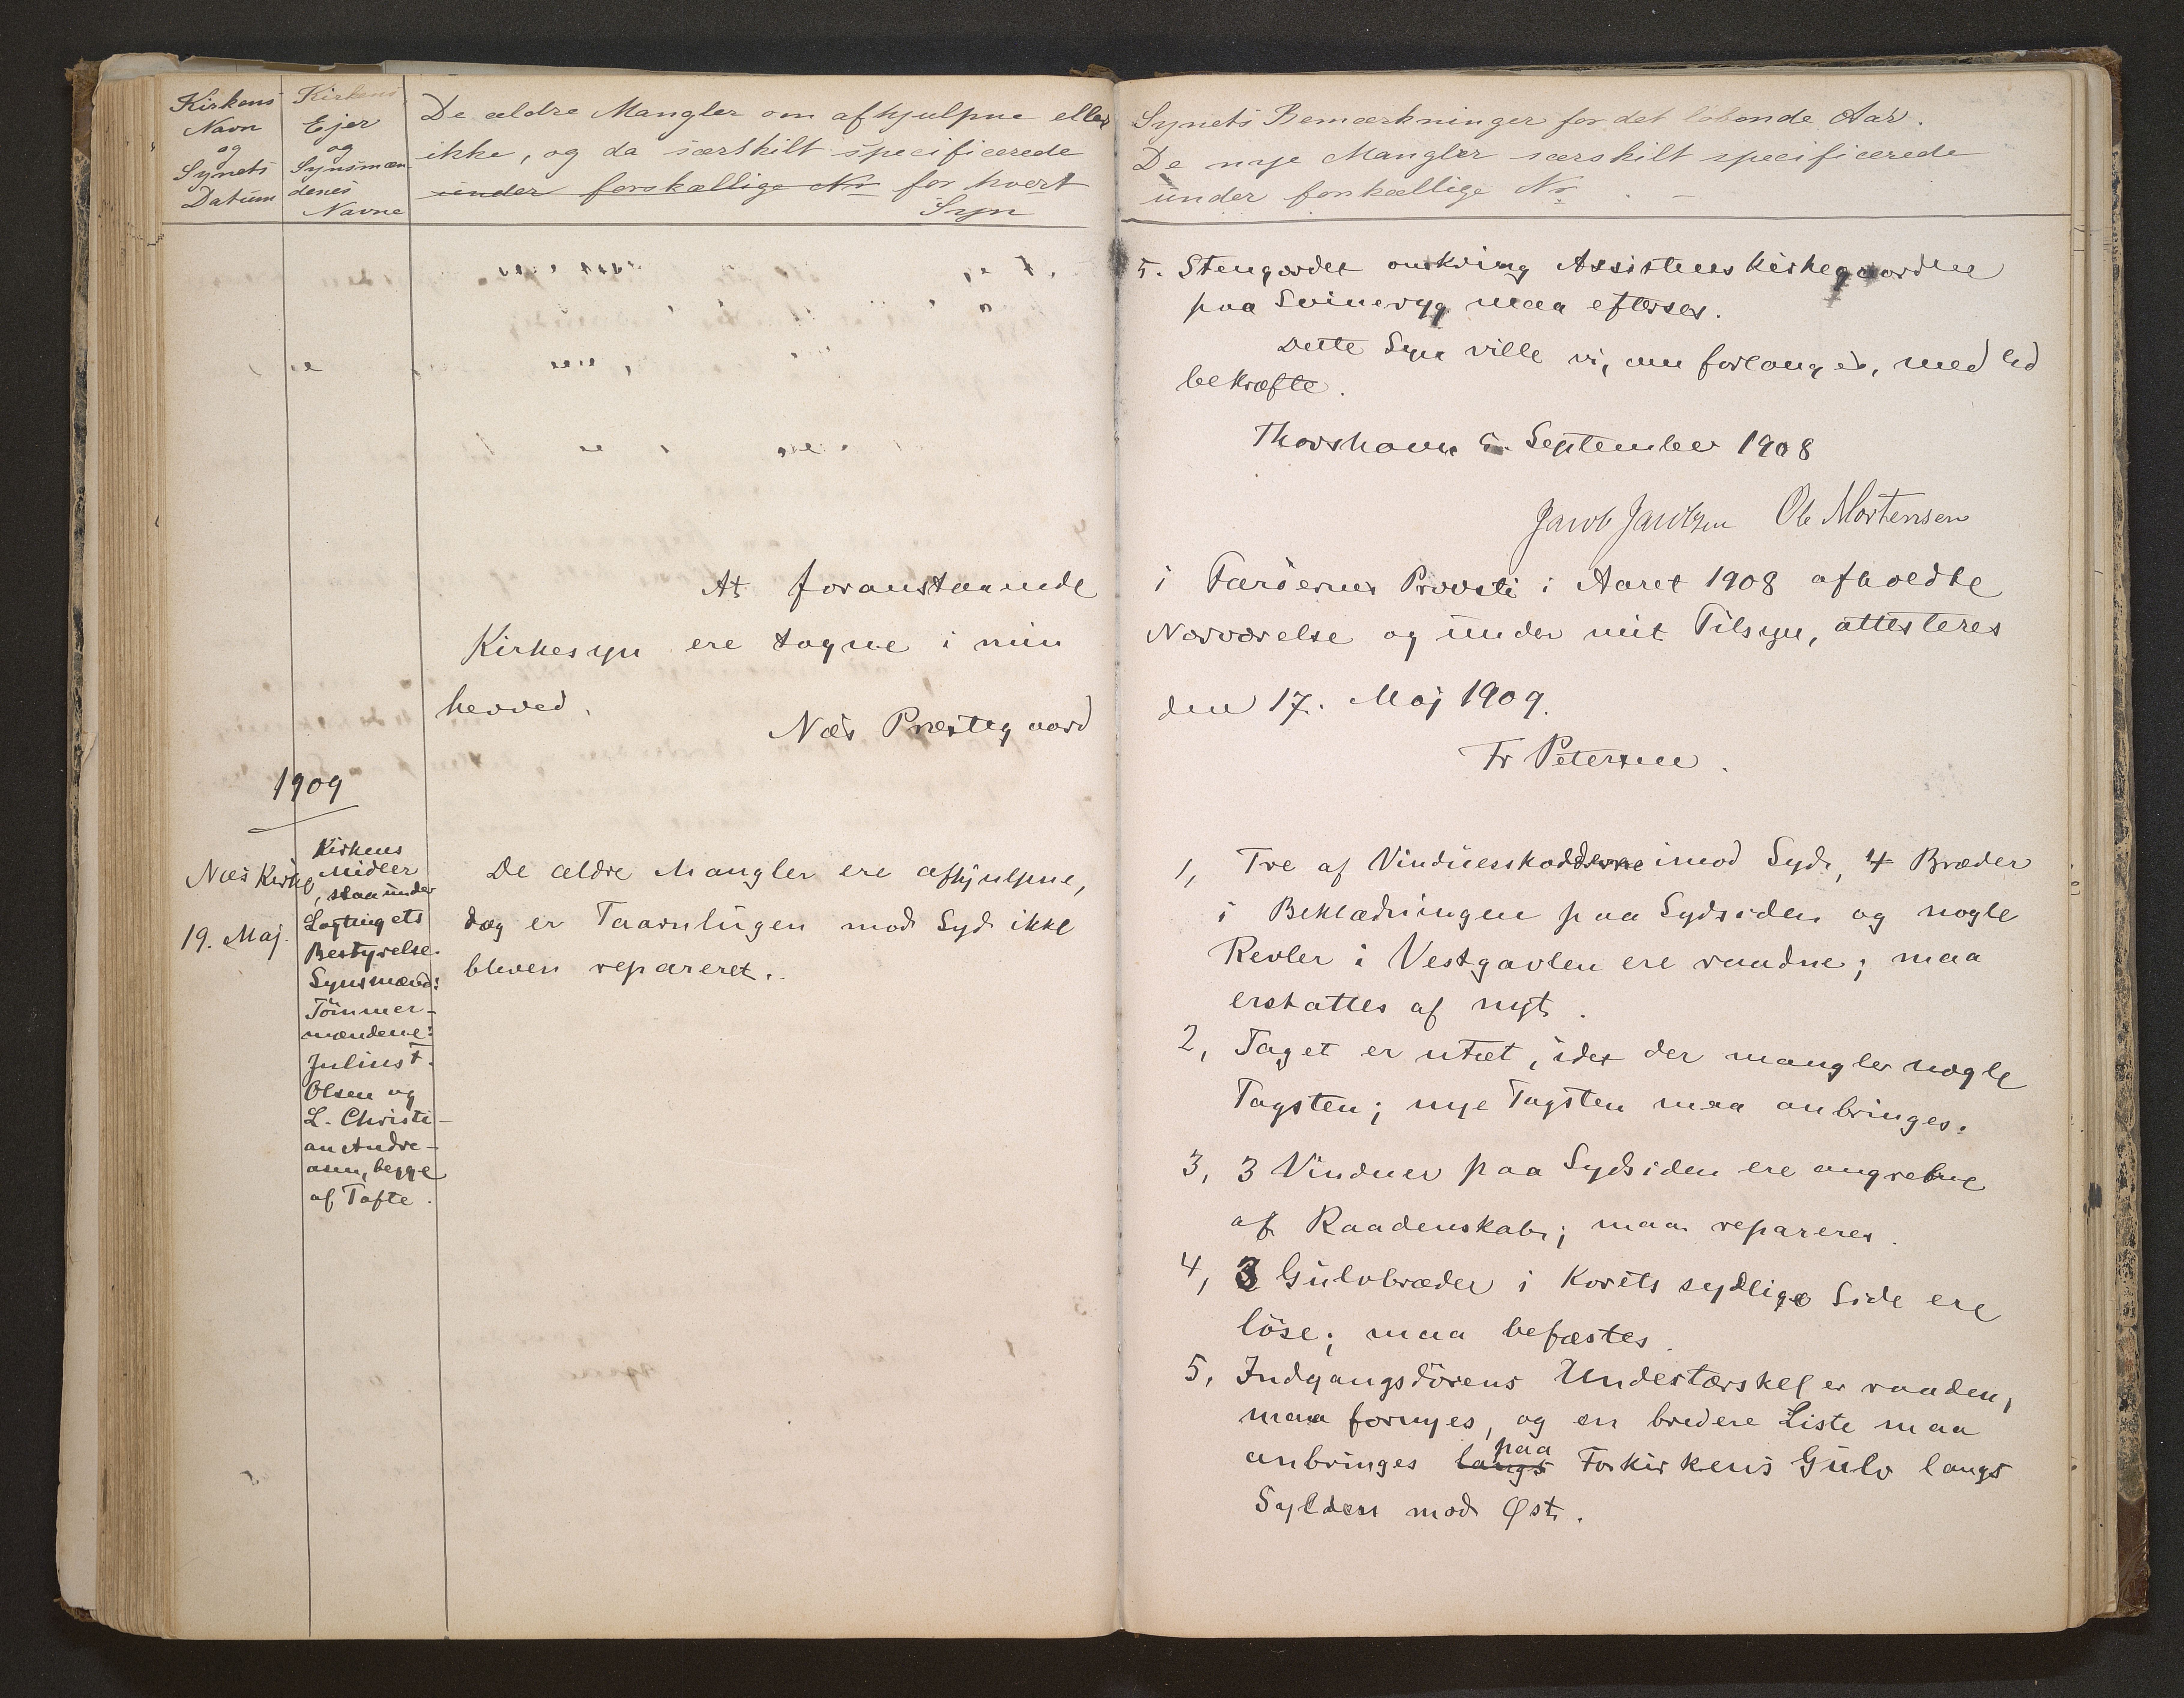 Kirkens
Navn
og
Synets
Datum
Kirkens
Ejer
og
Synsmæn
denes
Navne
De ældre Mangler om afhjulpne eller
ikke, og da særskilt specificerede
under forskællige Nr for hvert
Syn
1909
Næs Kirke,
19. Maj.
Kirkens
Midler
staa under
Lagtingets
Bestyrelse.
Synsmænd:
Tömmer-
mændene:
Julius T.
Olsen og
L. Christi-
an Andre-
asen, begge
af Tofte.
At foranstaaende
Kirkesyn ere tagne i min
herved.
Næs Præstegaard
De ældre Mangler ere afhjulpne,
dog er Taarnlugen mod Syd ikke
bleven repareret.
Synets Bemærkninger for det löbende Aar.
De nye Mangler særskilt specificerede
under forskællige Nr.
5. Stengærdet omkring Assistenskirkegaarden
paa Svineryg maa efterses.
Dette Syn ville vi, om forlanges, med Ed
bekræfte.
Thorshavn 5. September 1908
Jacob Jacobsen Ole Mortensen
i Færöernes Provsti i Aaret 1908 afholdte
Nærværelse og under mit Tilsyn, attesteres
den 17. Maj 1909.
Fr Petersen.
1, Tre af Vinduesskodderne imod Syd, 4 Bræder
i Beklædningen paa Sydsiden og nogle
Revler i Vestgavlen ere raadne; maa
erstattes af nyt.
2, Taget er utæt, idet der mangler nogle
Tagsten; nye Tagsten maa anbringes.
3, 3 Vinduer paa Sydsiden ere angrebne
af Raadenskab; maa repareres.
4, 3 Gulvbræder i Korets sydlige Side ere
löse; maa befæstes.
5, Indgangsdörens Undertærskel er raaden,
maa fornyes, og en bredere Liste maa
anbringes langs paa Forkirkens Gulv langs
Sylden mod Øst.